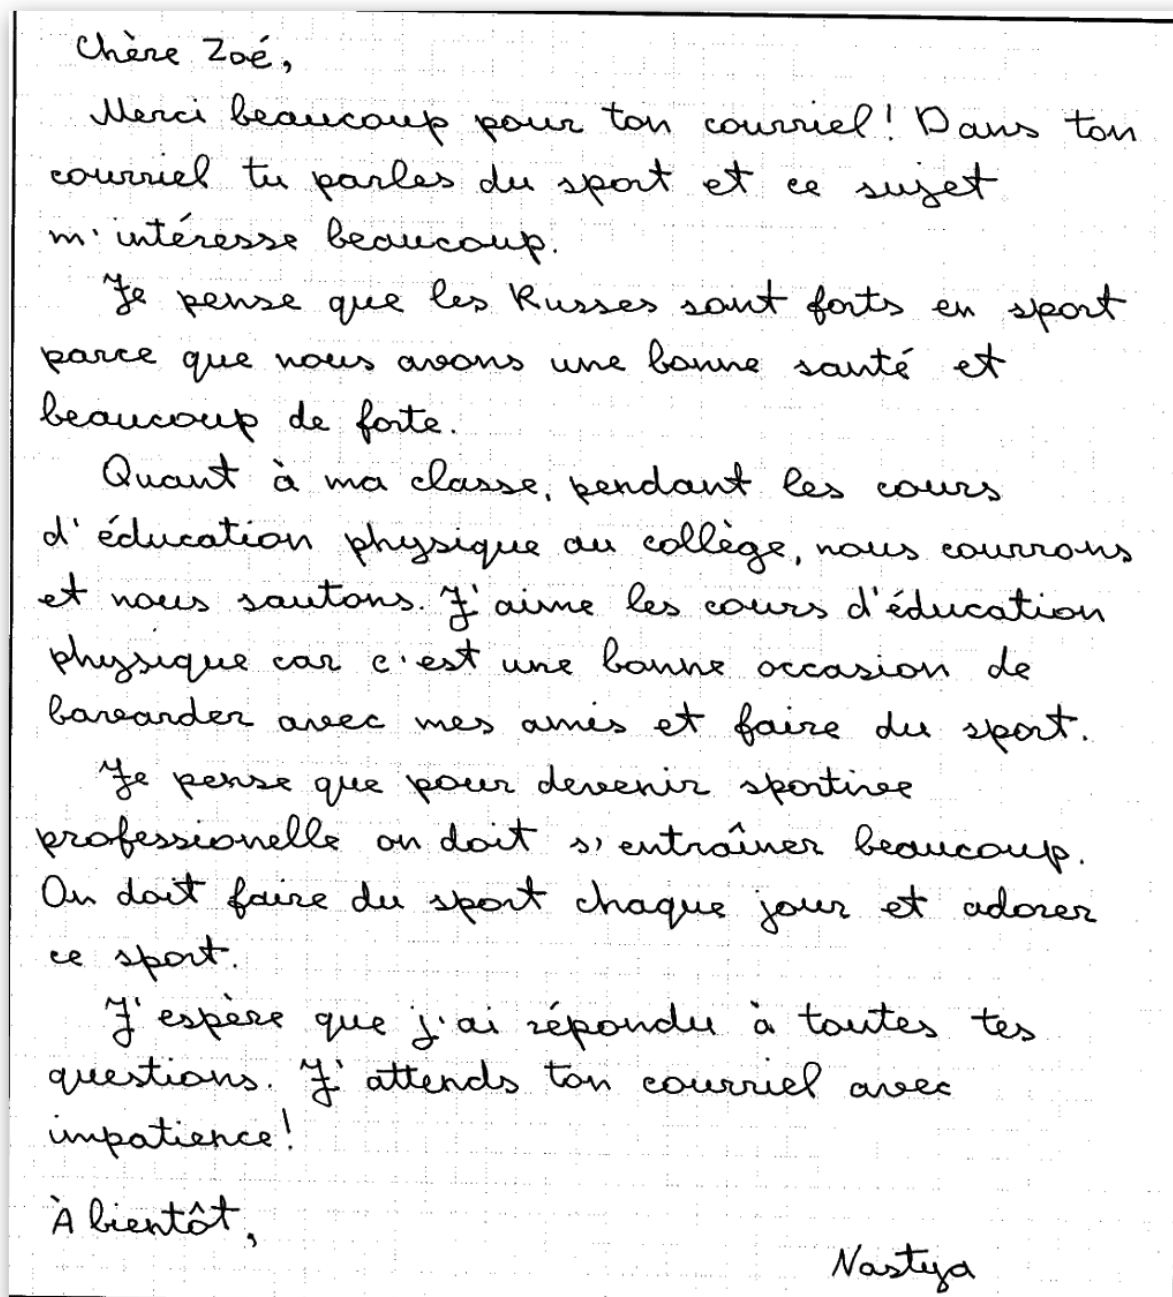 Chère Zoé,
Merci beaucoup pour ton courriel! Dans ton
courriel tu parles du sport et ce sujet
m'intéresse beaucoup.
Je pense que les Russes sont forts en sport
parce que nous avons une bonne santé et
beaucoup de forte.
Quant à ma classe, pendant les cours
d'éducation physique au collège, nous courrons
et nous sautons. J'aime les cours d'éducation
physique car c'est une bonne occasion de
bavarder avec mes amis et faire du sport.
Je pense que pour devenir sportive
professionelle on doit s'entraîner beaucoup.
On doit faire du sport chaque jour et adorer
ce sport.
J'espère que j'ai répondu à toutes tes
questions. J'attends ton courriel avec
impatience!
À bientôt,
Nastya